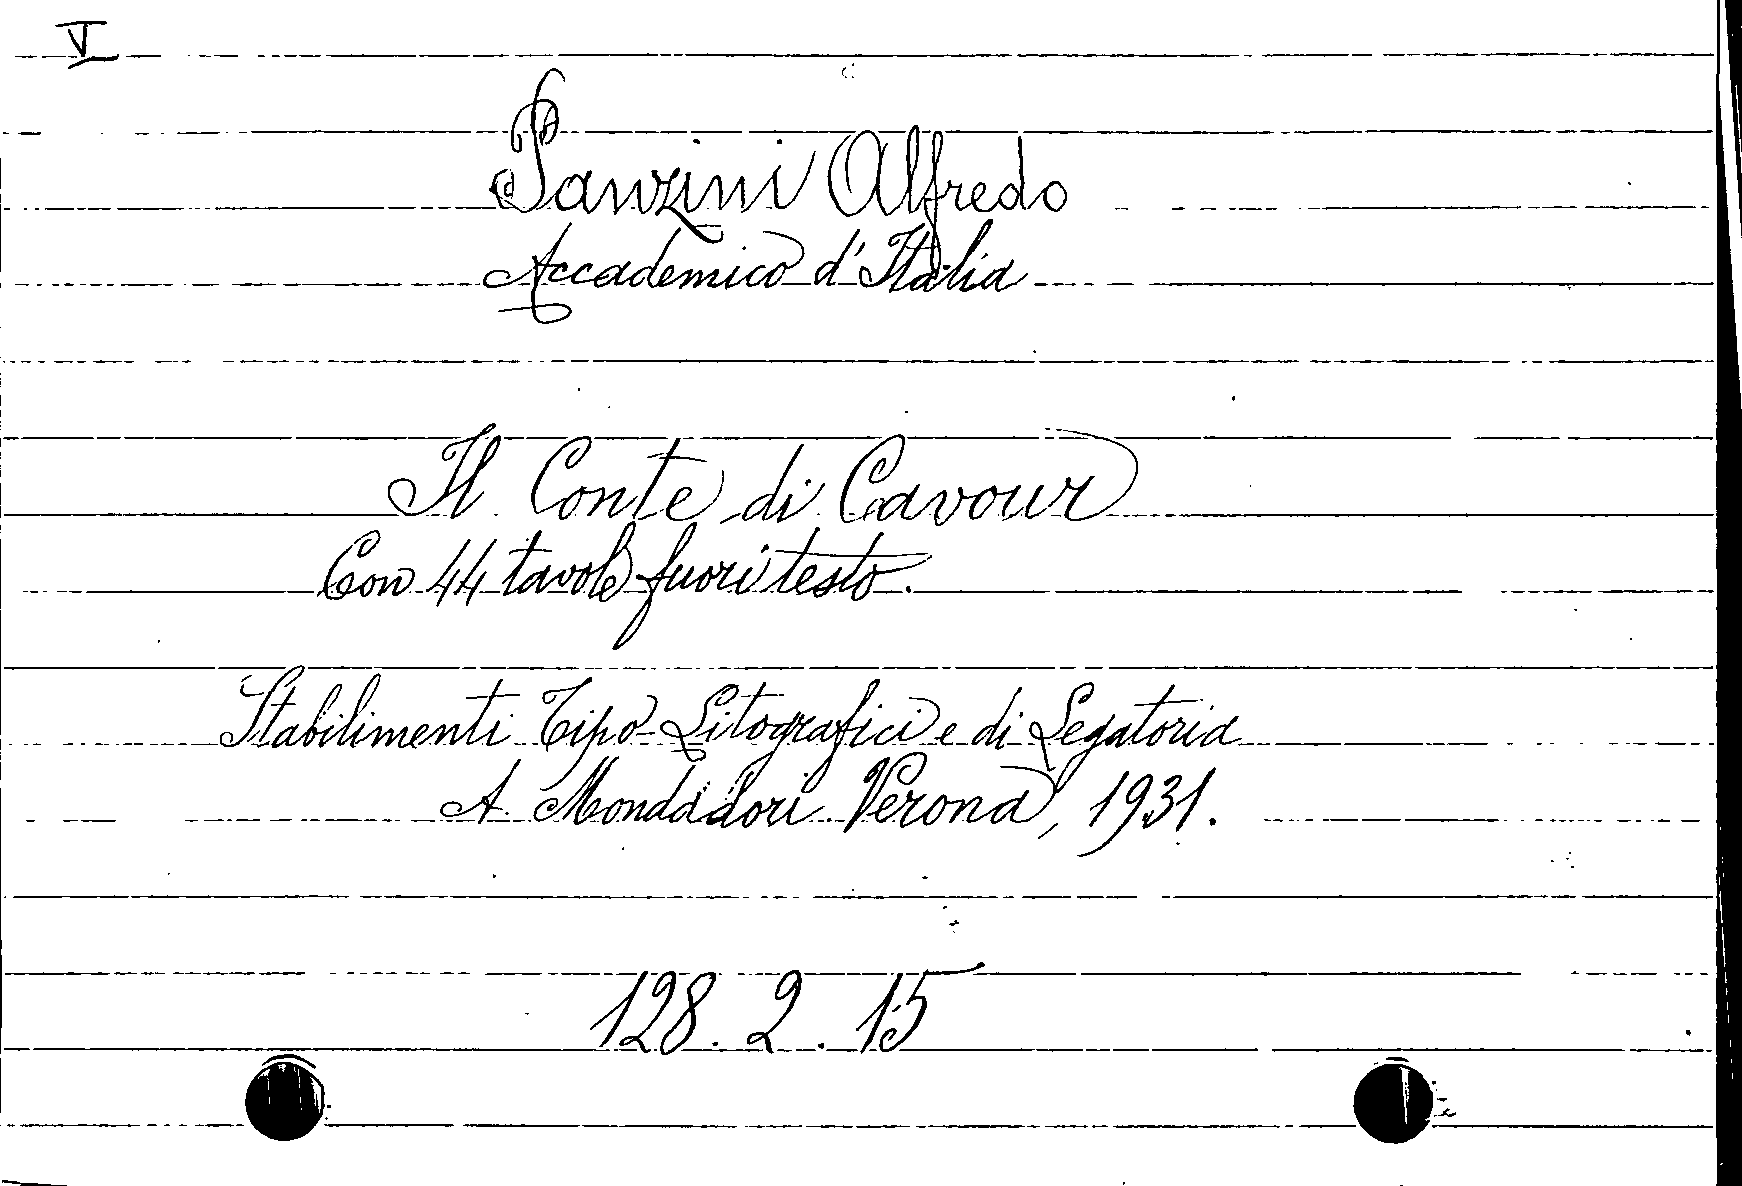 V
Panzini Alfredo
Accademico d'Italia
Il Conte di Cavour
Con 44 tavole fuori testo.
Stabilimenti Tipo-Litografici e di Legatoria
A. Mondadori Verona, 1931.
128.2.15